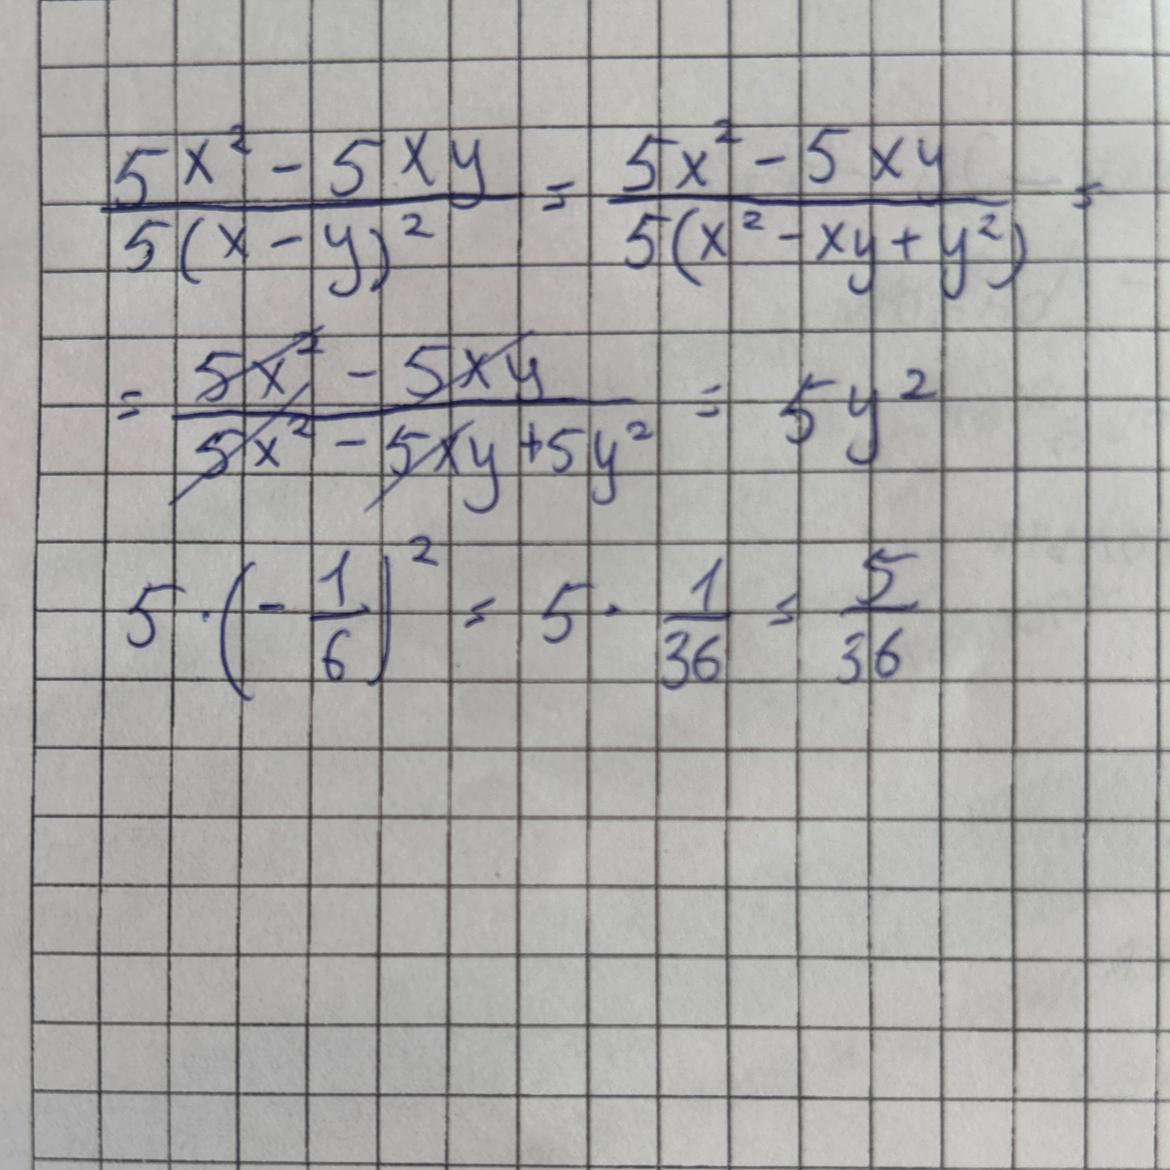 (5x² - 5xy)/(5(x - y)²) = (5x² - 5xy)/(5(x² - xy + y²)) =
= (5x² - 5xy)/(5x² - 5xy + 5y²) = 5y²
5 · (- 1/6)² = 5 · 1/36 = 5/36